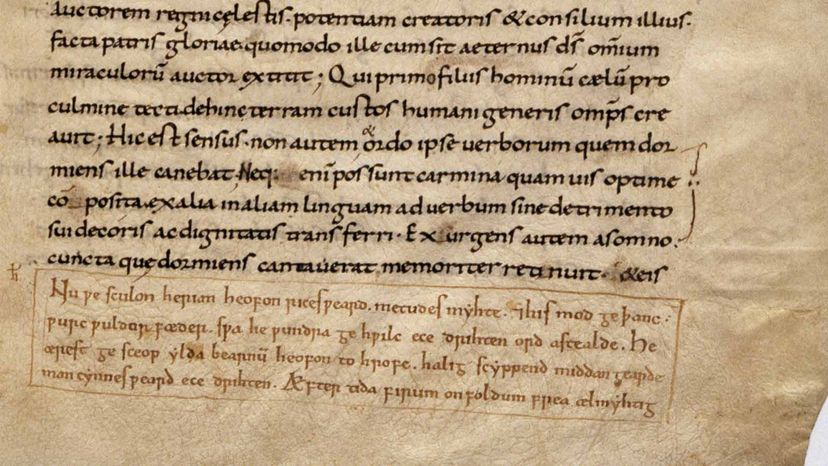 auctorem regni celestis. potentiam creatoris & consilium illius.
facta patris gloriae. quomodo ille cum sit aeternus d̄s omnium
miraculorū auctor extitit; Qui primo filius hominū cælū pro
culmine tecti. dehinc terram custos humani generis omp̄s cre
auit; Hic est sensus. non autem ordo ipse uerborum quem dor
miens ille canebat. Neq; enī possunt carmina quam uis optime
cō posita. ex alia in aliam linguam ad uerbum sine detrimento
sui decoris ac dignitatis transferri. Exurgens autem a somno.
cuncta que dormiens cantauerat memoriter retinuit. & eis
Nu ƿe sculon herian heofon rices ƿeard. metudes myhte. ⁊ his mod geþanc.
ƿurc ƿuldor fæder. sƿa he ƿundra ge hƿilc ece drihten ord astealde. He
ærest ge sceop ylda bearnū heofon to hrofe. halig scyppend middan gearde
mancynnes ƿeard ece drihten. Æfter tida firum on foldum frea ælmyhtig